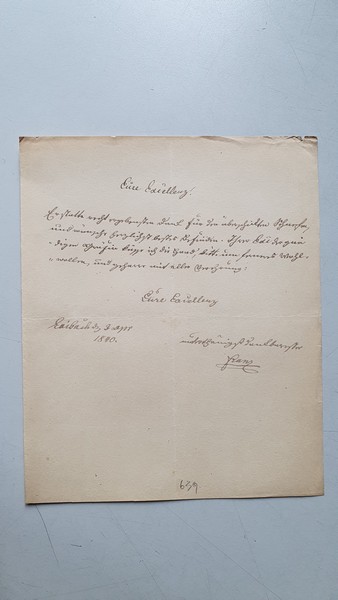 Eure Excellenz!
Erstatte recht ergebensten Dank für die überschickten
und wünsche herzlichst bestes Befinden. Ihrer
-digen Gemahlin küsse ich die Hand, bitte um ferneres Wohl-
-wollen, und geharre mit aller Verehrung
Eure Excellenz
Laibach den 3. 
1840.
unterthänigst dankbarster
Franz
639